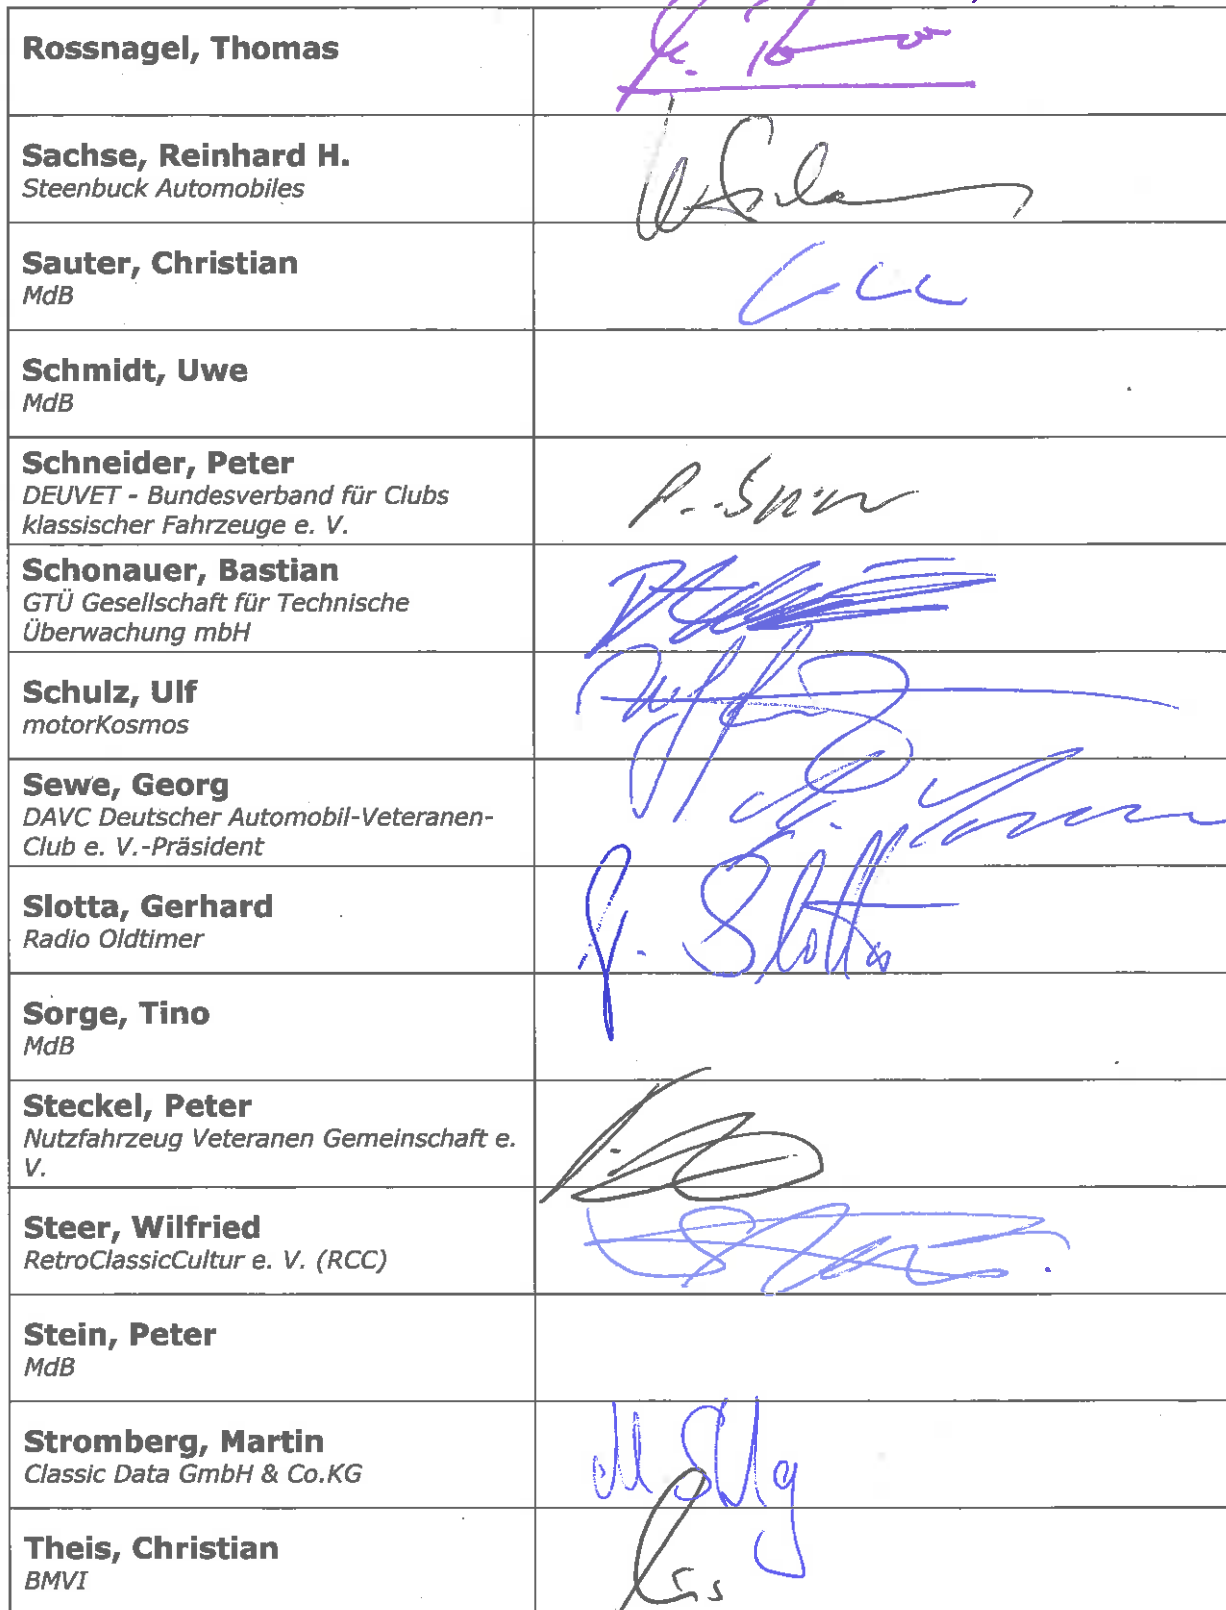 Rossnagel, Thomas
Sachse, Reinhard H.
Steenbuck Automobiles
Sauter, Christian
MdB
Schmidt, Uwe
MdB
Schneider, Peter
DEUVET - Bundesverband für Clubs
klassischer Fahrzeuge e. V.
Schonauer, Bastian
GTÜ Gesellschaft für Technische
Überwachung mbH
Schulz, Ulf
motorKosmos
Sewe, Georg
DAVC Deutscher Automobil-Veteranen-
Club e. V.-Präsident
Slotta, Gerhard
Radio Oldtimer
G. Slotta
Sorge, Tino
MdB
Steckel, Peter
Nutzfahrzeug Veteranen Gemeinschaft e.
V.
Steer, Wilfried
RetroClassicCultur e. V. (RCC)
Stein, Peter
MdB
Stromberg, Martin
Classic Data GmbH & Co.KG
Theis, Christian
BMVI